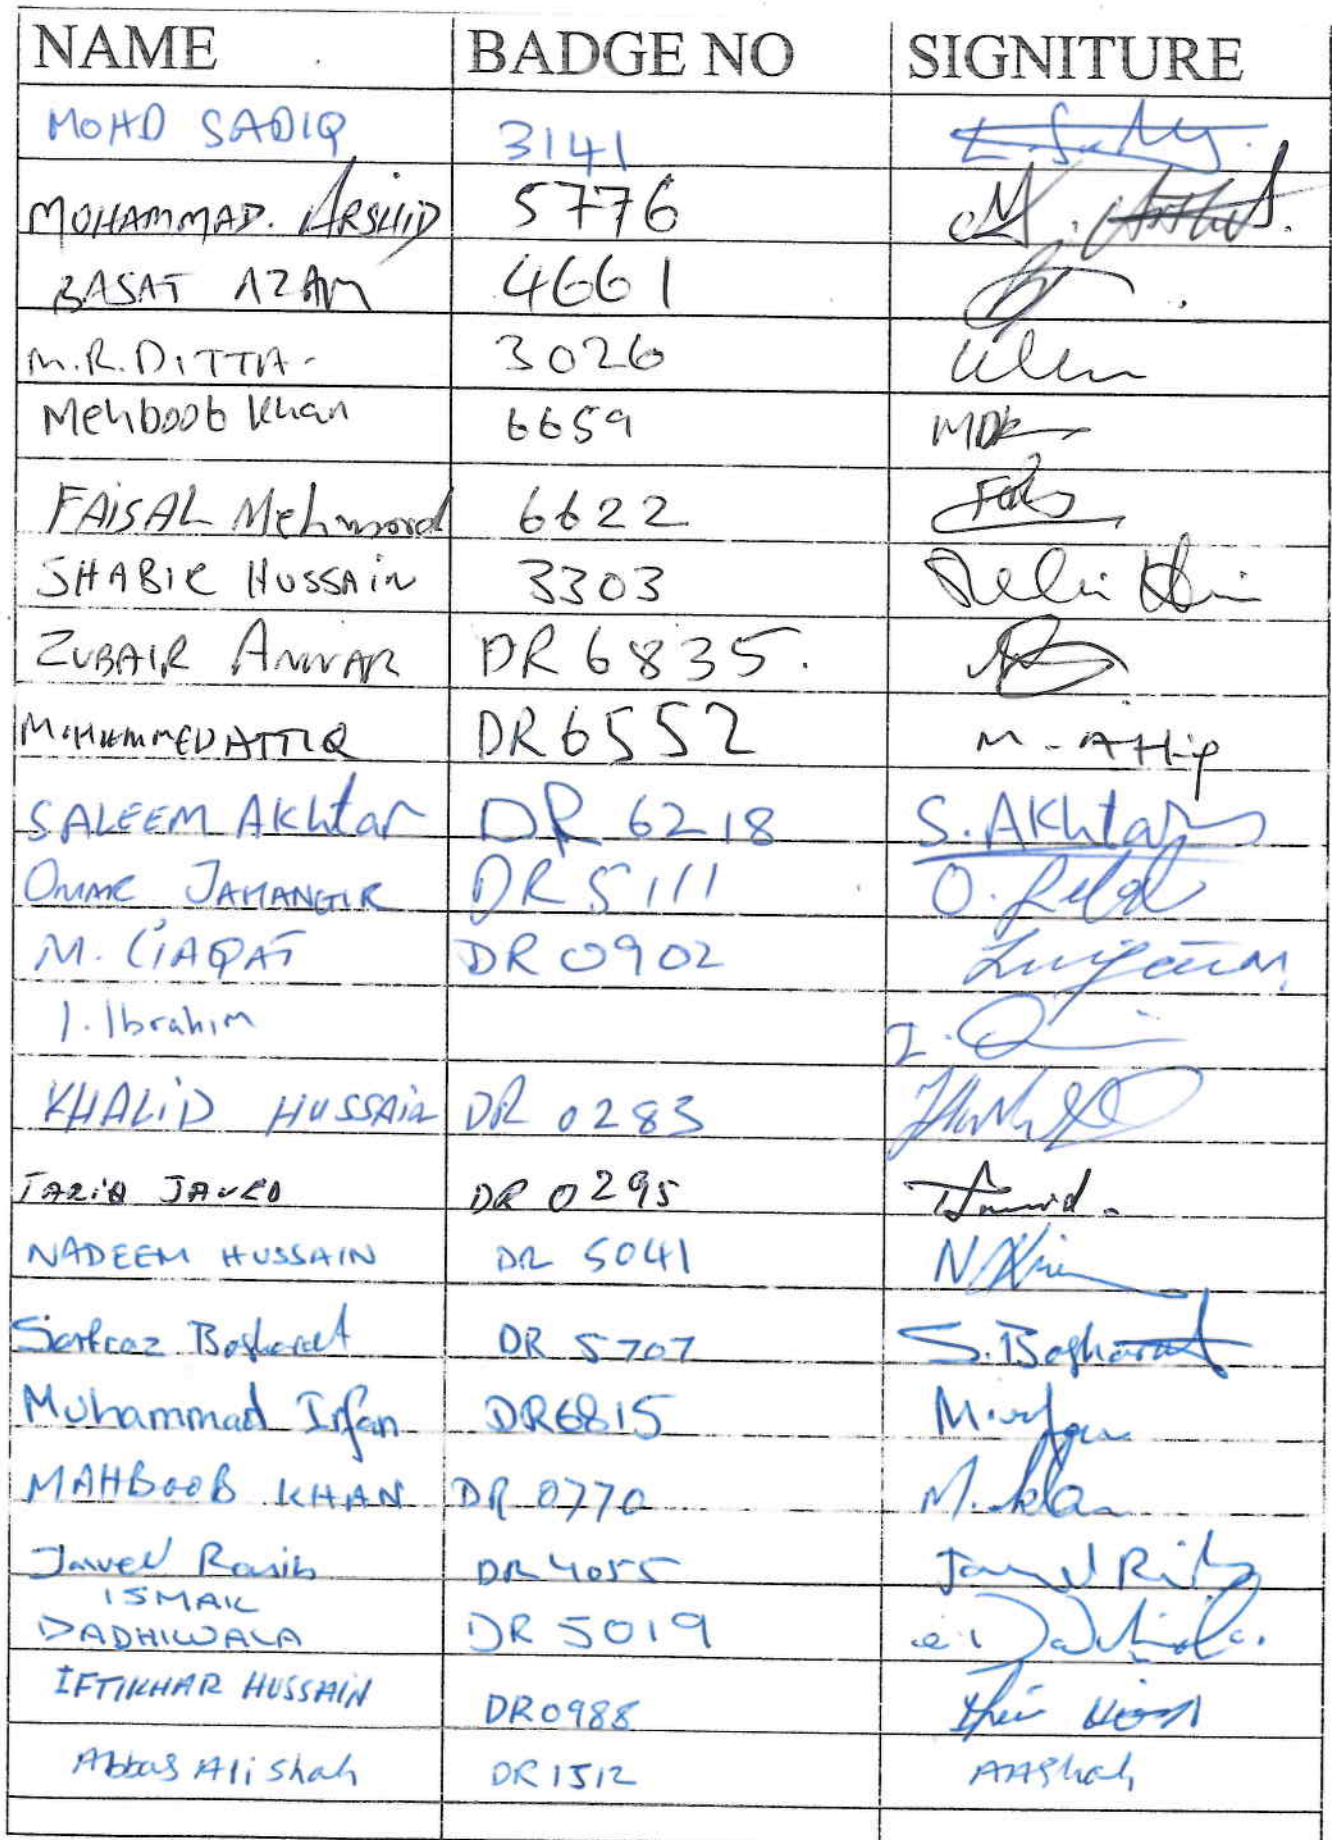 NAME BADGE NO SIGNITURE
MOHD SADIQ 3141
MOHAMMAD. ARSHID 5776 M.
BASAT AZAM 4661
M.R. DITTA- 3026
Mehboob Khan 6659 MDK
FAISAL Mehmood 6622
SHABIR HUSSAIN 3303
ZUBAIR ANWAR DR 6835.
MOHAMMED ATTIQ DR 6552 M - Attiq
SALEEM AKhtar DR 6218 S. AKhtar
OMAR JAHANGIR DR 5111 O.
M. LIAQAT DR 0902
I. Ibrahim I.
KHALID HUSSAIN DR 0283
TARIQ JAVED DR 0295
NADEEM HUSSAIN DR 5041
Sarfraz Basharat DR 5707 S. Basharat
Muhammad Irfan DR6815 M. Irfan
MAHBOOB KHAN DR 0770 M. Khan
Javed Rasib DR 4055
ISMAIL
DADHIWALA DR 5019
IFTIKHAR HUSSAIN DR0988
Abbas Ali Shah DR 1512 AAShah